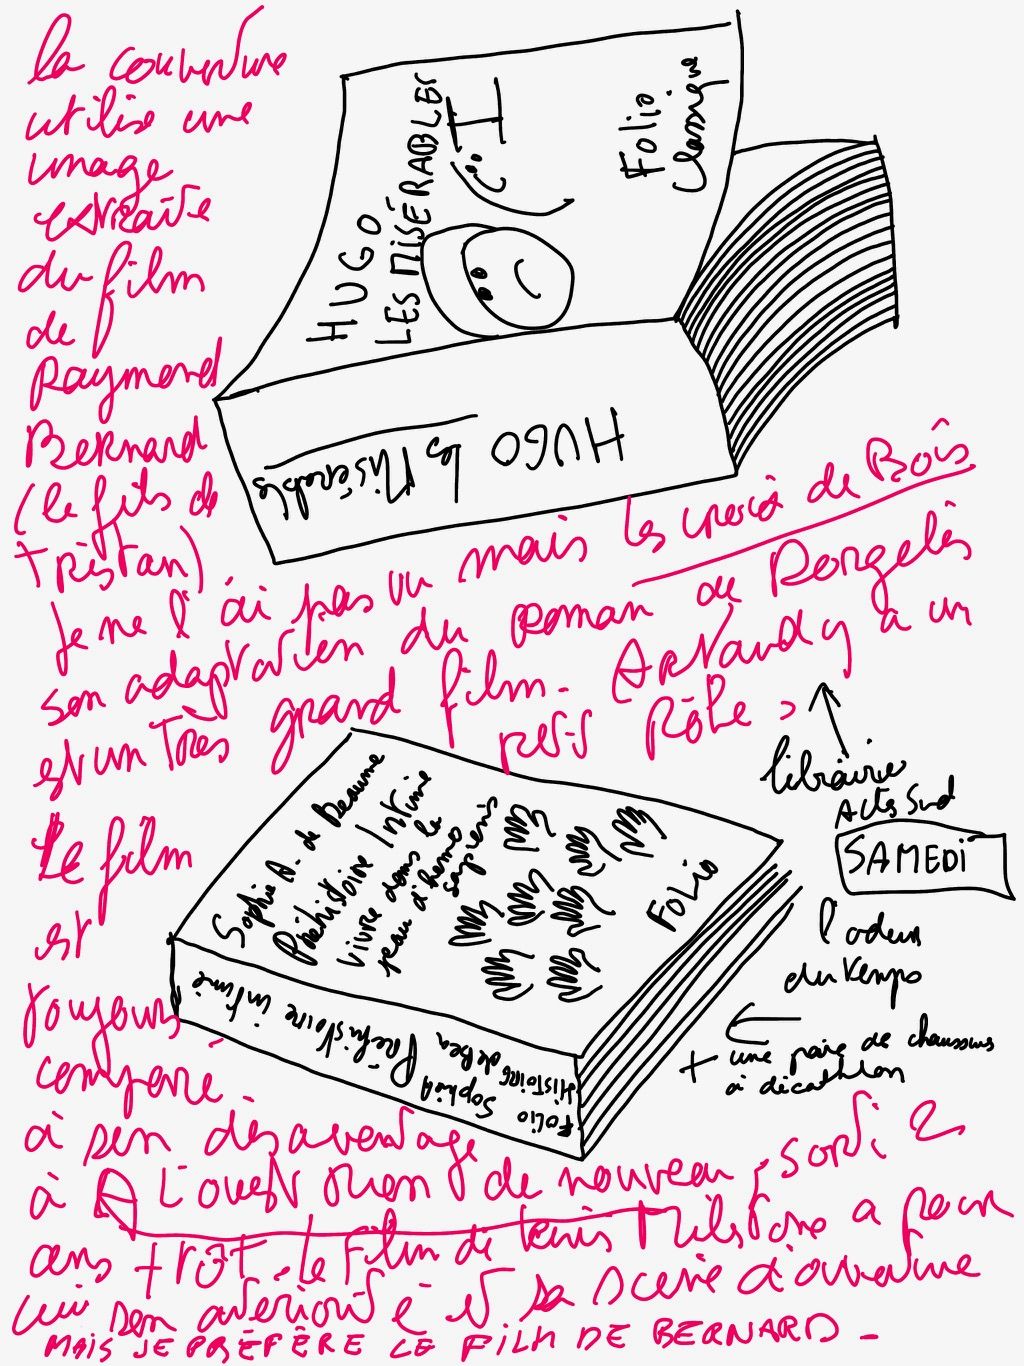 la couverture
utilise une
image
extraite
du film
de
Raymond
Bernard
(le fils de
Tristan)
HUGO
LES MISÉRABLES
I
Folio
Classique
HUGO Les Misérables
Je ne l'ai pas vu mais les croix de Bois
son adaptation du roman de Dorgelès
est un très grand film. Artaud y a un
petit rôle.
librairie
Actes Sud
SAMEDI
l'odeur
du temps
+ une paire de chaussons
à décathlon
Sophie A. de Beaune
Préhistoire Intime
vivre dans la
peau d'homo
sapiens
FOLIO
Préhistoire intime
Sophie A
de Bea
FOLIO
HISTOIRE
Le film
est
toujours
comparé
à son désavantage
à A L'ouest rien de nouveau, sorti 2
ans + tôt. Le film de Lewis Milestone a pour
lui son antériorité et sa scène d'ouverture
MAIS JE PRÉFÈRE LE FILM DE BERNARD -